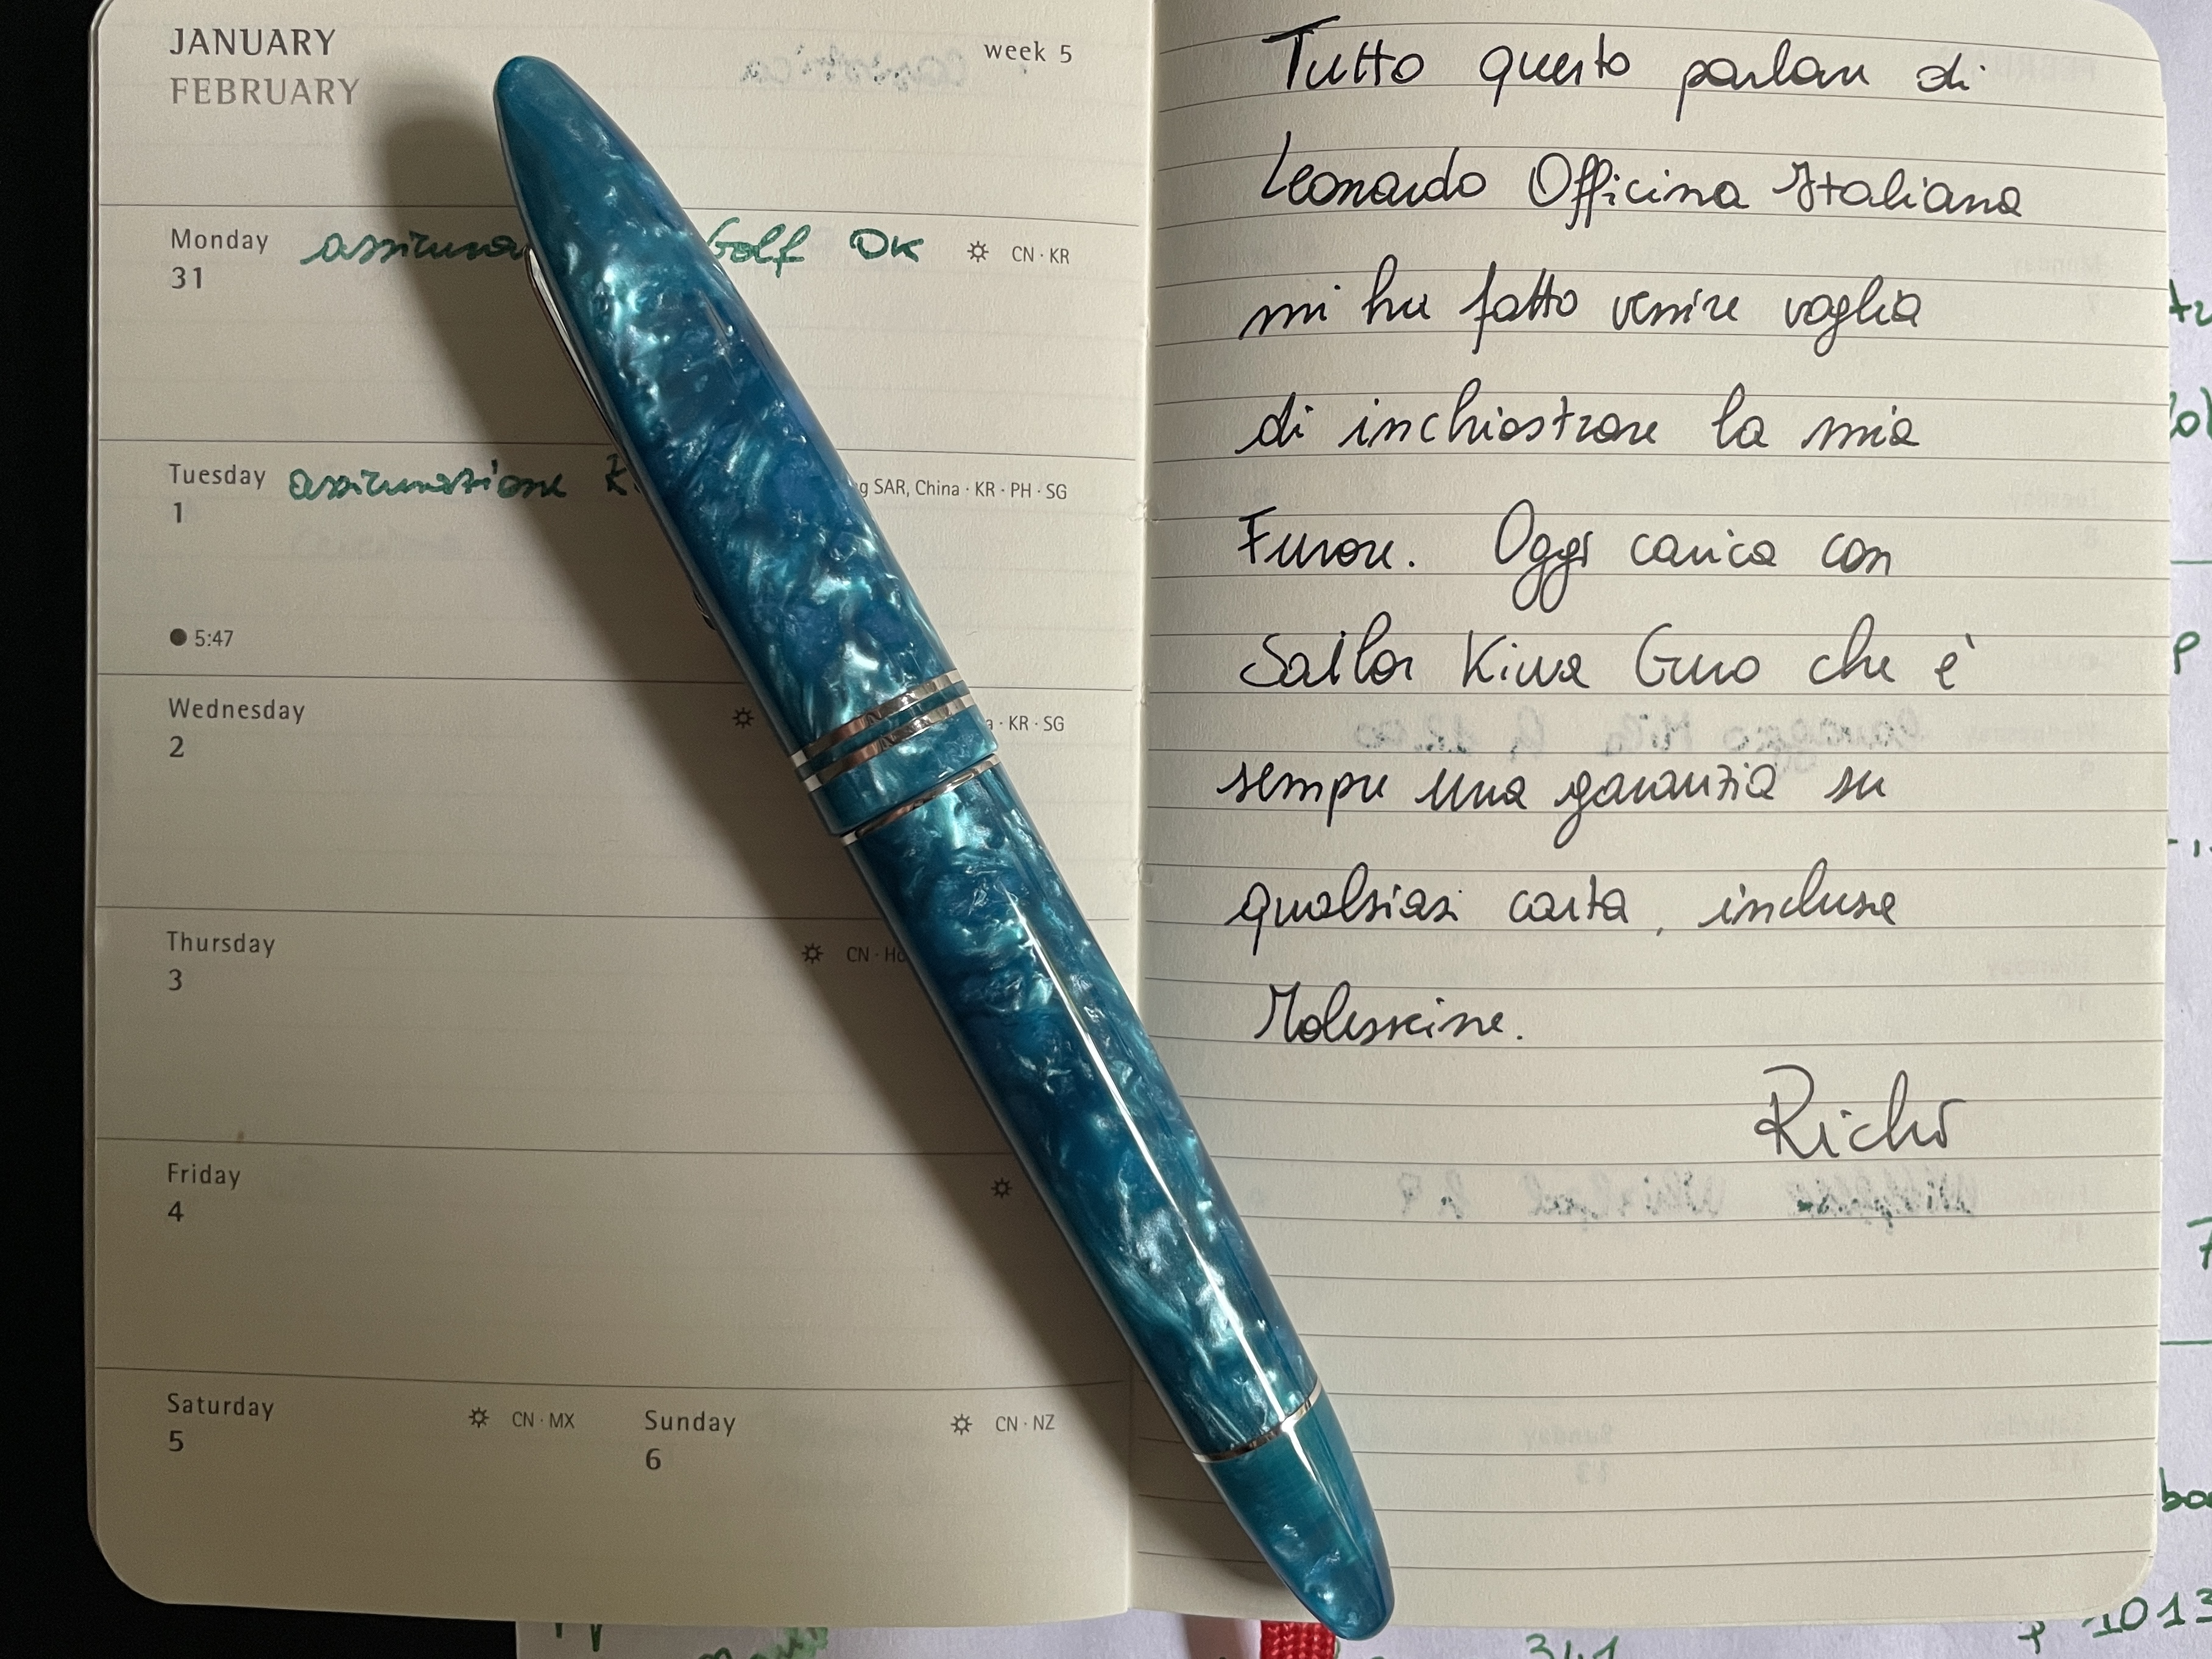 JANUARY
FEBRUARY
week 5
Monday
31
Golf OK
CN · KR
Tuesday
1
assicurazione
g SAR, China · KR · PH · SG
5:47
Wednesday
2
· KR · SG
Thursday
3
CN ·
Friday
4
Saturday
5
CN · MX
Sunday
6
CN · NZ
Tutto questo parlare di
Leonardo Officina Italiana
mi ha fatto venire voglia
di inchiostrare la mia
Furore. Oggi carica con
Sailor Kiwa Guro che è
sempre una garanzia su
qualsiasi carta, incluse
Moleskine.
341
1013